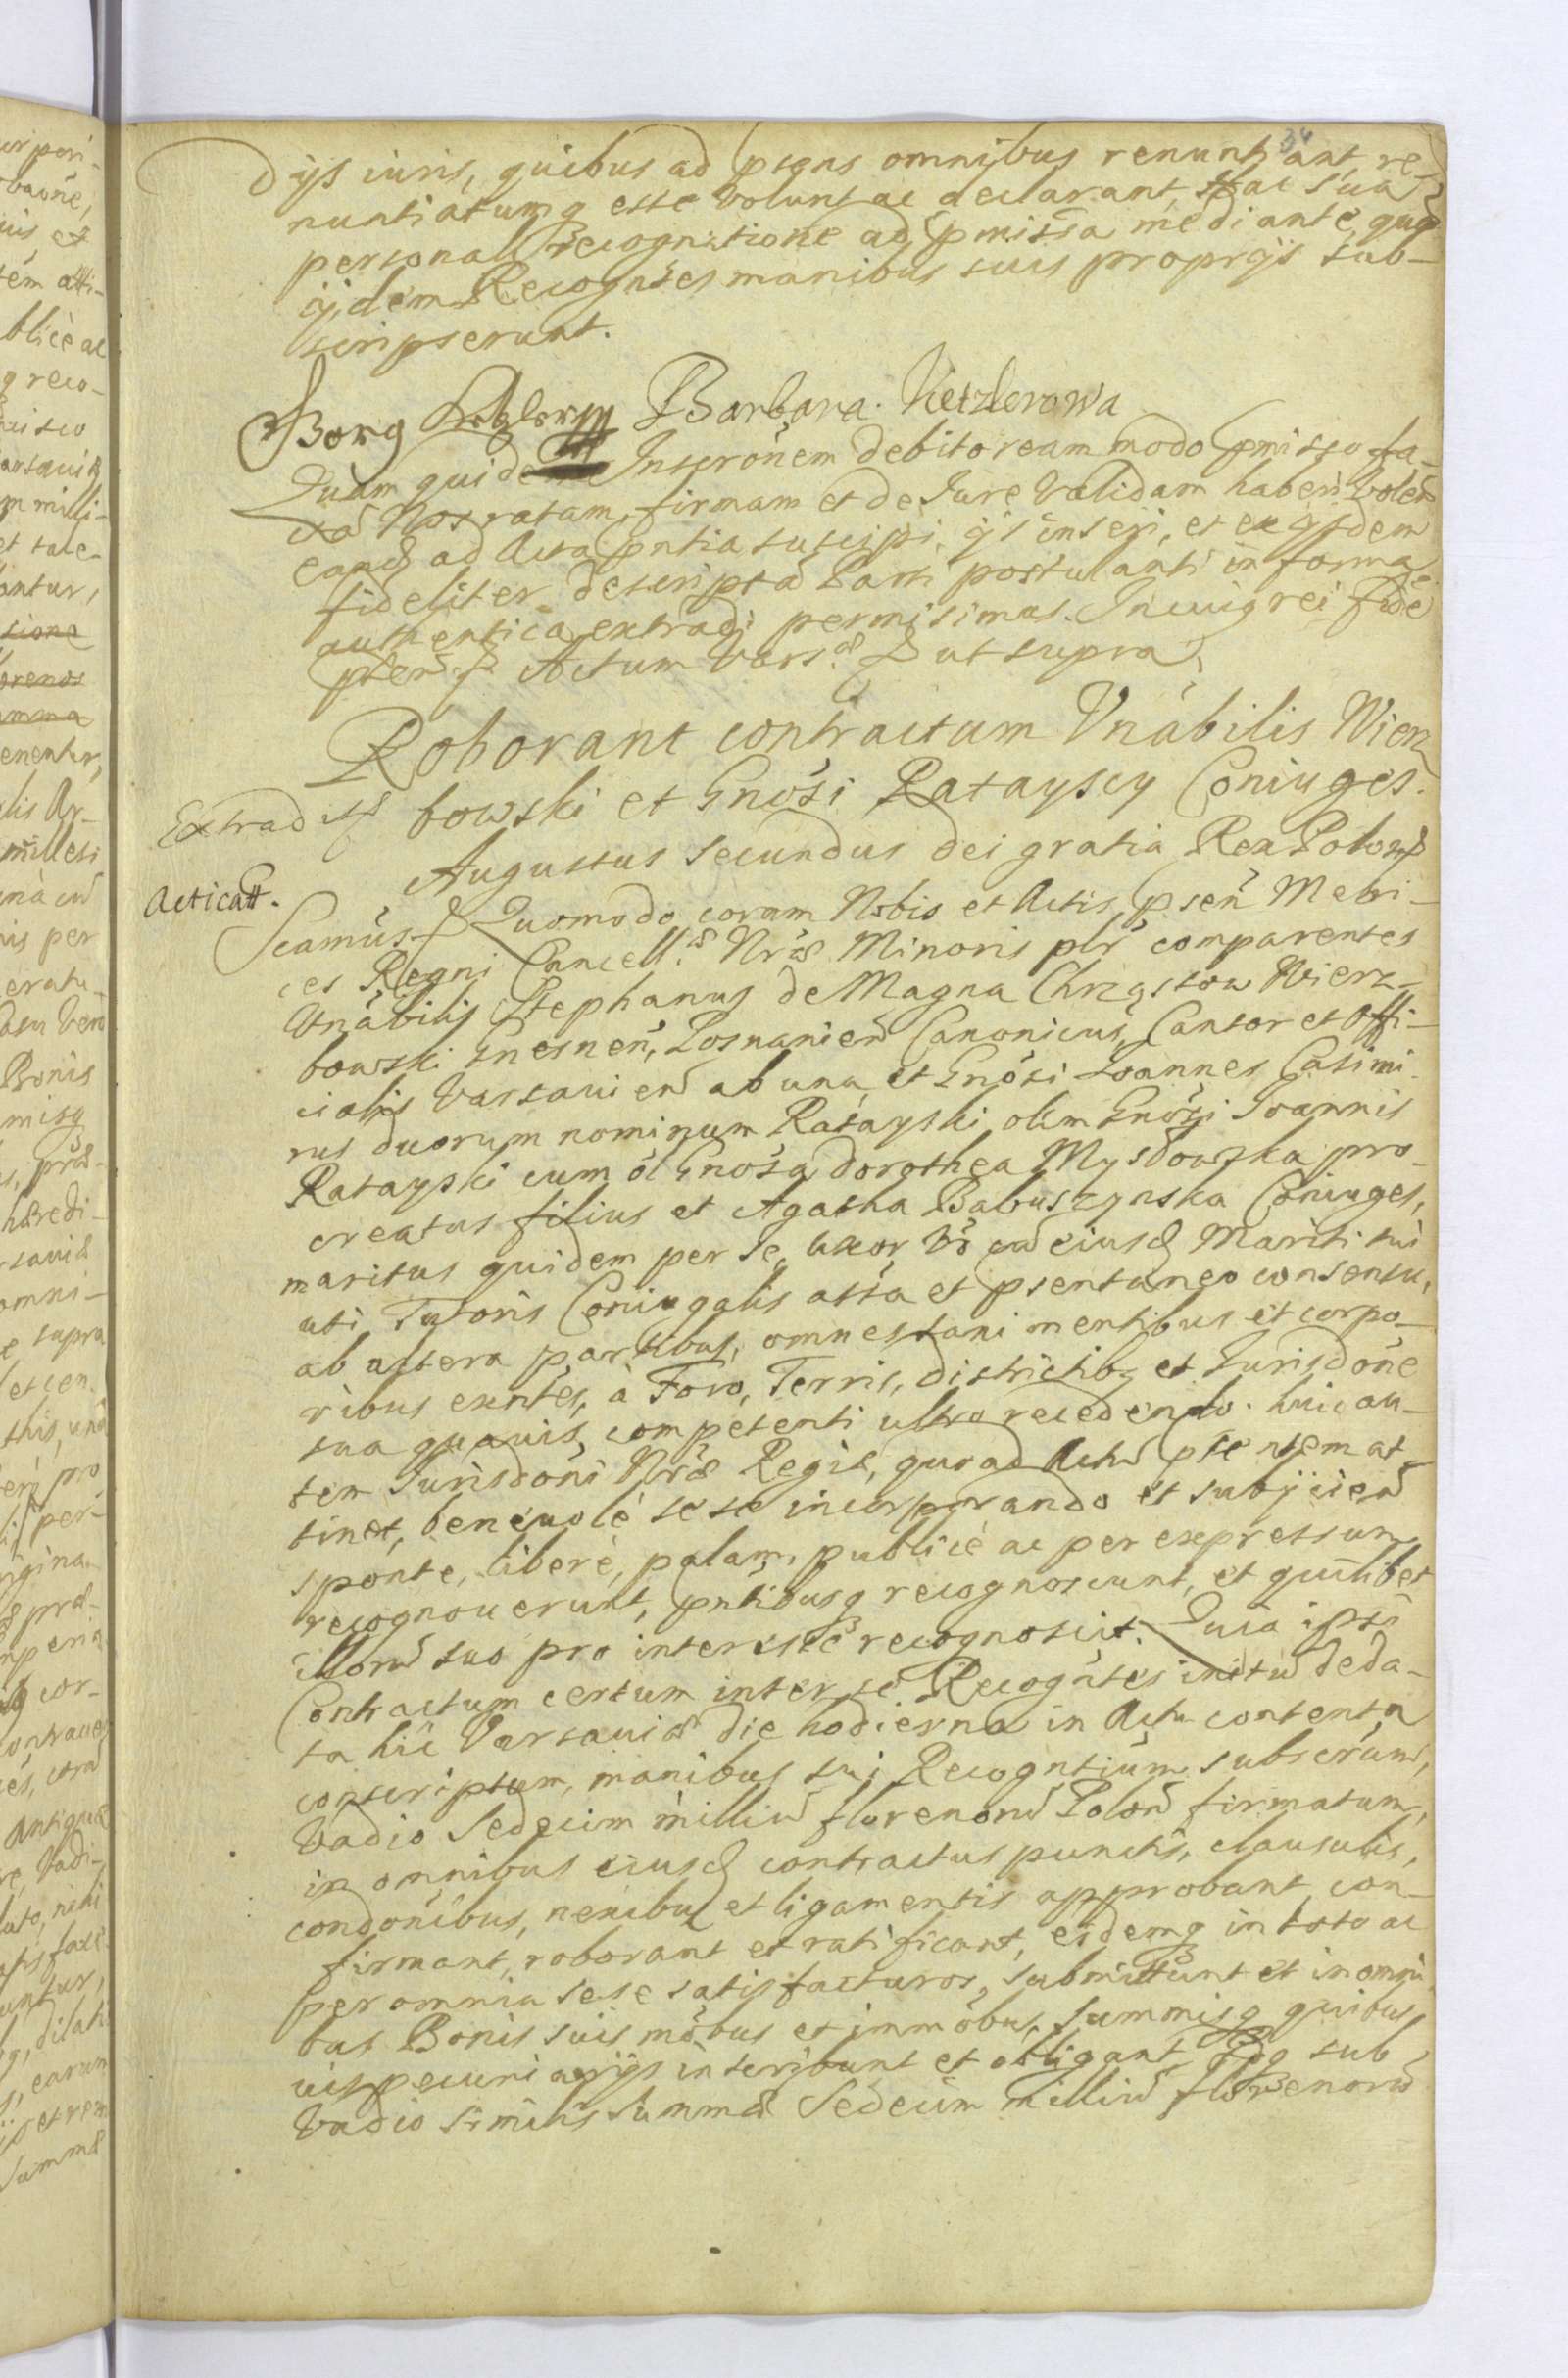 34
dijs iuris, quibus ad psens omnibus renuntiant, re-
nuntiatumq esse volunt ac declarant, hac sua
personali recognitione ad pmissa mediante, quā
ijdem Recognēs manibus suis proprijs sub-
scripserunt.
Barbara Ketzlerowa
Quam quidem Inscrōnem debitoream modo pmisso fa-
ctā Nos ratam, firmam et de Iure validam haberi volen
eand ad Acta pntia suscipi, ijs inseri, et ex ijsdem
fideliter descriptā Parti postulanti in forma
authentica extradi permisimus. In cuiq rei fidē
pten Actum Vars. ut supra
Roborant contractum Vnābilis Wierz
Extrad bowski et Gnōsi Rataysey Coniuges.
Augustus Secundus dei gratia Rex Polon
Acticatt.
Scamūs Quomodo coram Nobis et Actis psen̄ Metri-
ces Regni Cancell. Nrae Minoris plr comparentes
Vnābilis Stephanus de Magna Chrząstow Wierz-
bowski Gnesnen, Posnanien Canonicus, Cantor et Offi-
cialis Varsavien ab una, et Gnōsi Ioannes Casimi-
rus duorum nominum Ratayski olim Gnōsi Ioannis
Ratayski cum ol Gnōsa Dorothea Mysłowska pro-
creatus filius et Agatha Babuszynska Coniuges,
maritus quidem per se, uxor vō cū eiusd Mariti sui
uti Tutoris Coniugalis assa et psentaneo consensu,
ab altera partibus, omnes sani mentibus et corpo-
ribus exntes, à Foro, Terris, districtibq et Iurisdone
sua quavis, competenti ultro recedendo. huic au-
tem Iurisdōni Nrae Regiae, quo ad Actū psentem at-
tinet, benevolè sese incorporando et subijcien
sponte, liberè, palam, publicè ac per expressum
recognoverunt, pntibusq recognoscunt, et quilibet
illorū suo pro interesse recognoscit. Quia ipsi
Contractum certum inter se Recognntes initū deda-
ta hic Varsaviae die hodierna in Actu contenta
conscriptum, manibus sui Recogntium subscrūm,
Vadio Sedecim milliū florenorū Polon firmatum,
in omnibus eiusd contractus punctis, clausulis,
condōnibus, nexibus et ligamentis approbant, con-
firmant, roborant et ratificant, eidemq in toto ac
per omnia sese satisfacturos, submittunt et in omni
bus Bonis suis mōbus et immōbus, Summisq quibus
vis pecuniarijs inscribunt et obligant, idq sub
Vadio similis Summae Sedecim milliū florenorū